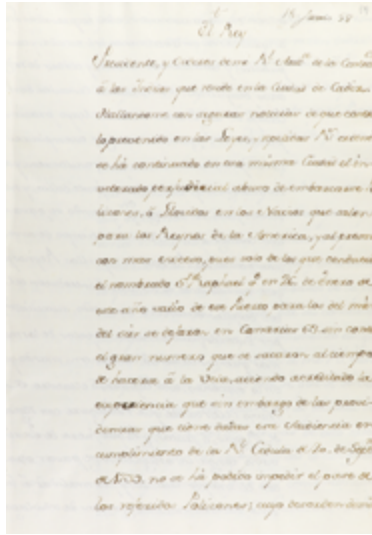 18 Junio 58
El Rey
Presidente, y Oidores de mi Rl. Aud.a de la Contra
á las Indias que reside en la Ciudad de Cadiz.
Hallandome con seguras noticias de que contra
lo prevenido en las Leyes, y repetidas Rs.
se há continuado en esa misma Ciudad el in
veterado perjudicial abuso de embarcarse
ó Llovidos en los Navios que salen
para los Reynos de la America, y al presente
con mas exceso, pues solo de los que
el nombrado Sn. Raphael qe. en 16. de Enero de
este año salió de ese Puerto para los del mar
del sur se dejaron en Canarias 63. sin contar
el gran numero que se sacaron al tiempo
de hacerse á la Vela, siendo acreditado la
experiencia que sin embargo de las provi
dencias que tiene dadas esa Audiencia en
cumplimiento de la Rl. Cedula de
de no se há podido impedir el paso de
los referidos Polizones; cuyo